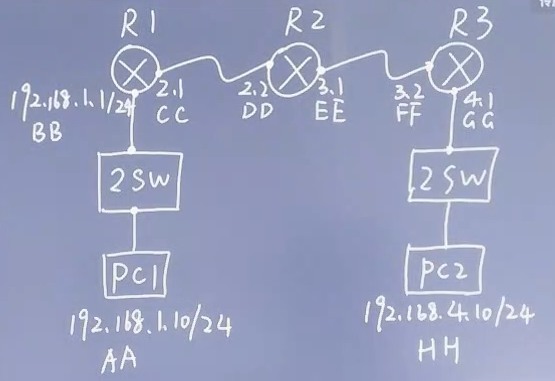 R1
R2
R3
192.168.1.1/24
BB
2.1
CC
2.2
DD
3.1
EE
3.2
FF
4.1
GG
2SW
2SW
PC1
PC2
192.168.1.10/24
AA
192.168.4.10/24
HH